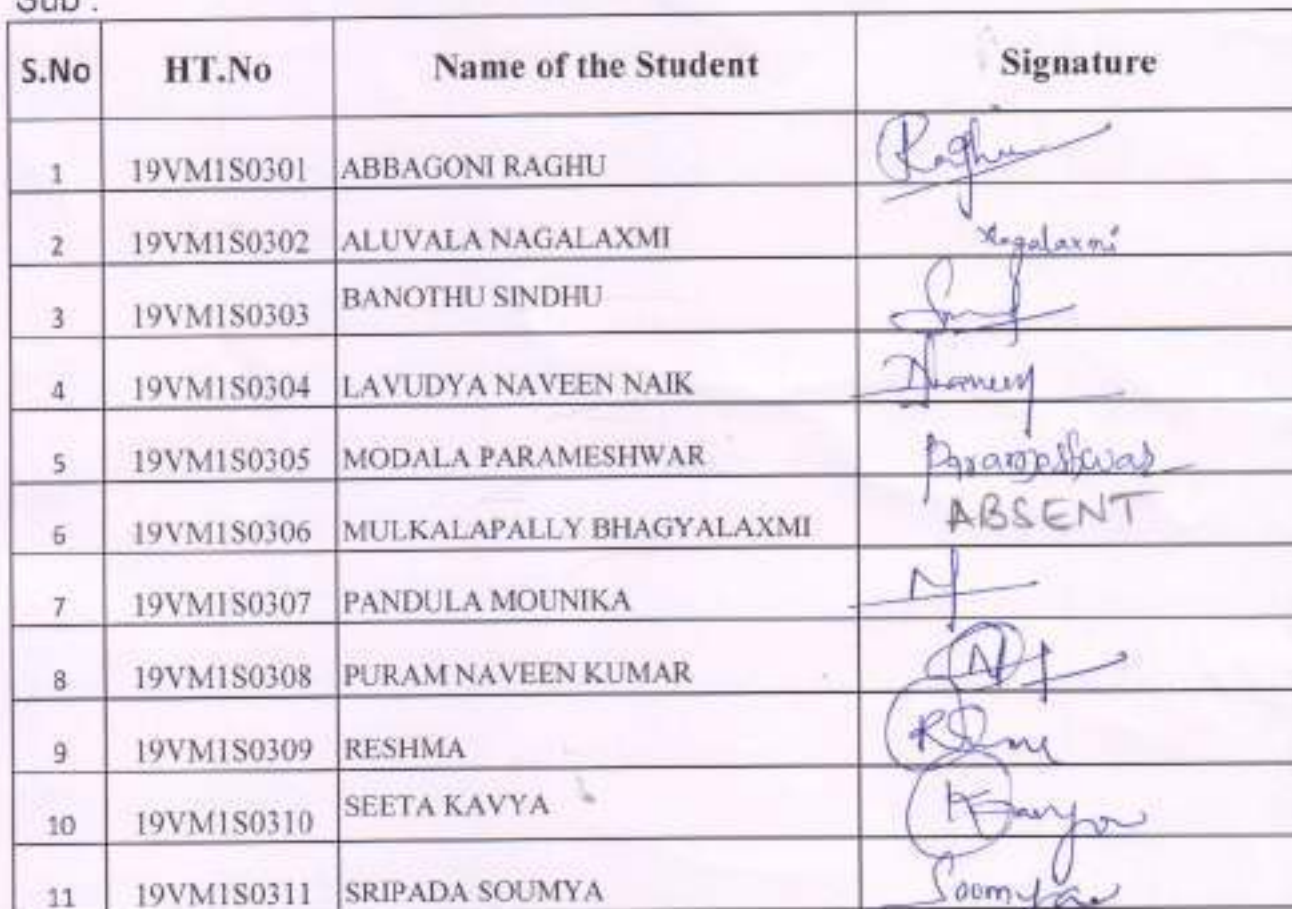 Sub :
S.No HT.No Name of the Student Signature
1 19VM1S0301 ABBAGONI RAGHU Raghu
2 19VM1S0302 ALUVALA NAGALAXMI Nagalaxmi
3 19VM1S0303 BANOTHU SINDHU
4 19VM1S0304 LAVUDYA NAVEEN NAIK
5 19VM1S0305 MODALA PARAMESHWAR Parameshwar
6 19VM1S0306 MULKALAPALLY BHAGYALAXMI ABSENT
7 19VM1S0307 PANDULA MOUNIKA
8 19VM1S0308 PURAM NAVEEN KUMAR
9 19VM1S0309 RESHMA
10 19VM1S0310 SEETA KAVYA
11 19VM1S0311 SRIPADA SOUMYA